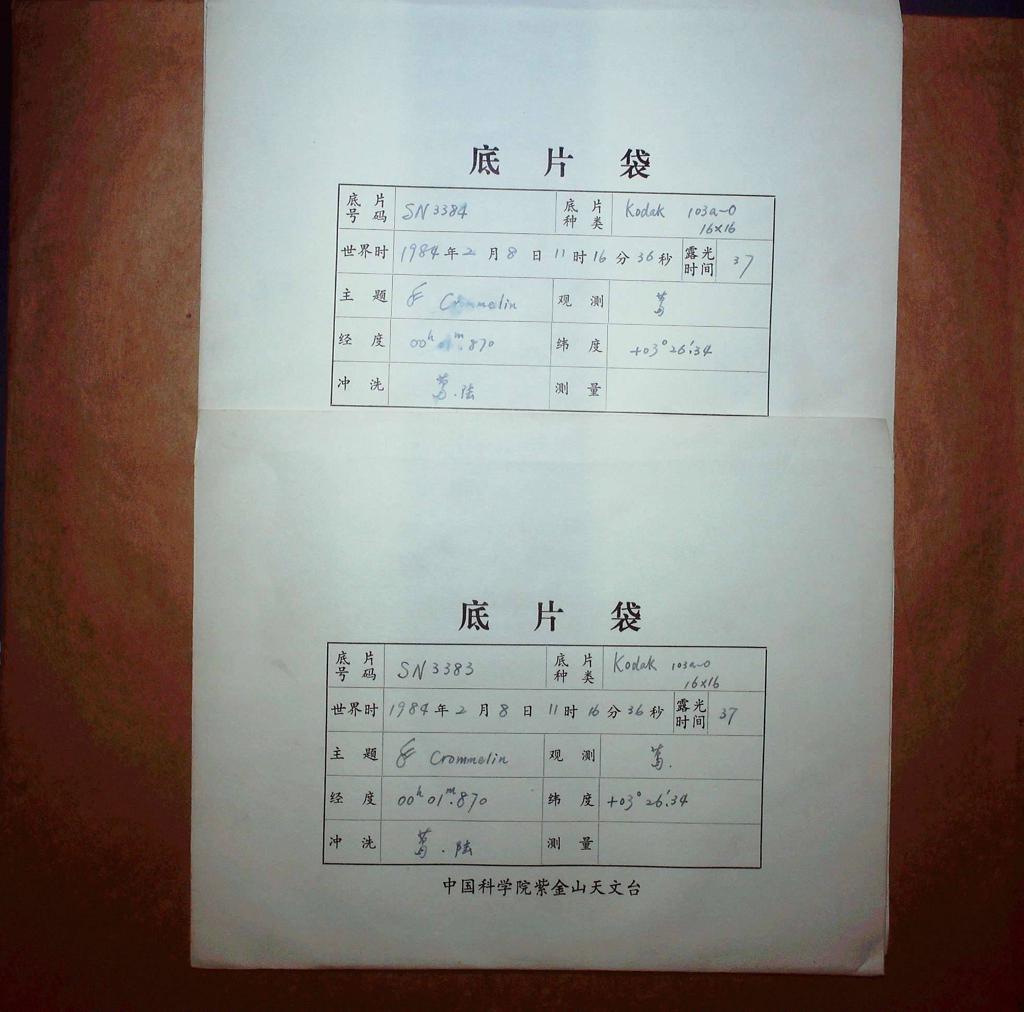 底 片 袋
底 片 号 码 SN 3384 底 片 种 类 Kodak 103a-O 16×16
世界时 1984 年 2 月 8 日 11 时 16 分 36 秒 露光时间 37
主 题 Crommelin 观 测
经 度 00h 01m.870 纬 度 +03° 26′.34
冲 洗 陆 测 量
底 片 袋
底 片 号 码 SN 3383 底 片 种 类 Kodak 103a-O 16×16
世界时 1984 年 2 月 8 日 11 时 16 分 36 秒 露光时间 37
主 题 Crommelin 观 测
经 度 00h 01m.870 纬 度 +03° 26′.34
冲 洗 陆 测 量
中国科学院紫金山天文台